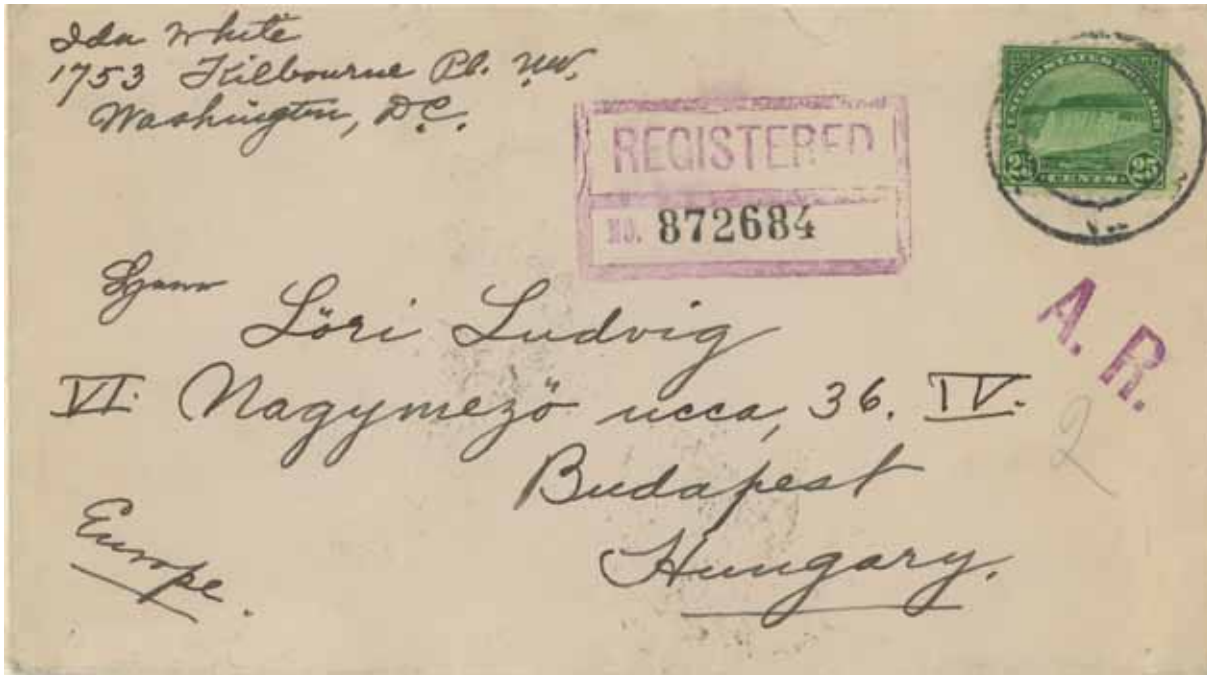 Ida White
1753 Kilbourne Pl. N.W.
Washington, D.C.
REGISTERED
NO. 872684
UNITED STATES POSTAGE
25 CENTS 25
A. R.
Löri Ludvig
VI. Nagymező ucca, 36. IV.
2
Budapest
Hungary.
Europe.